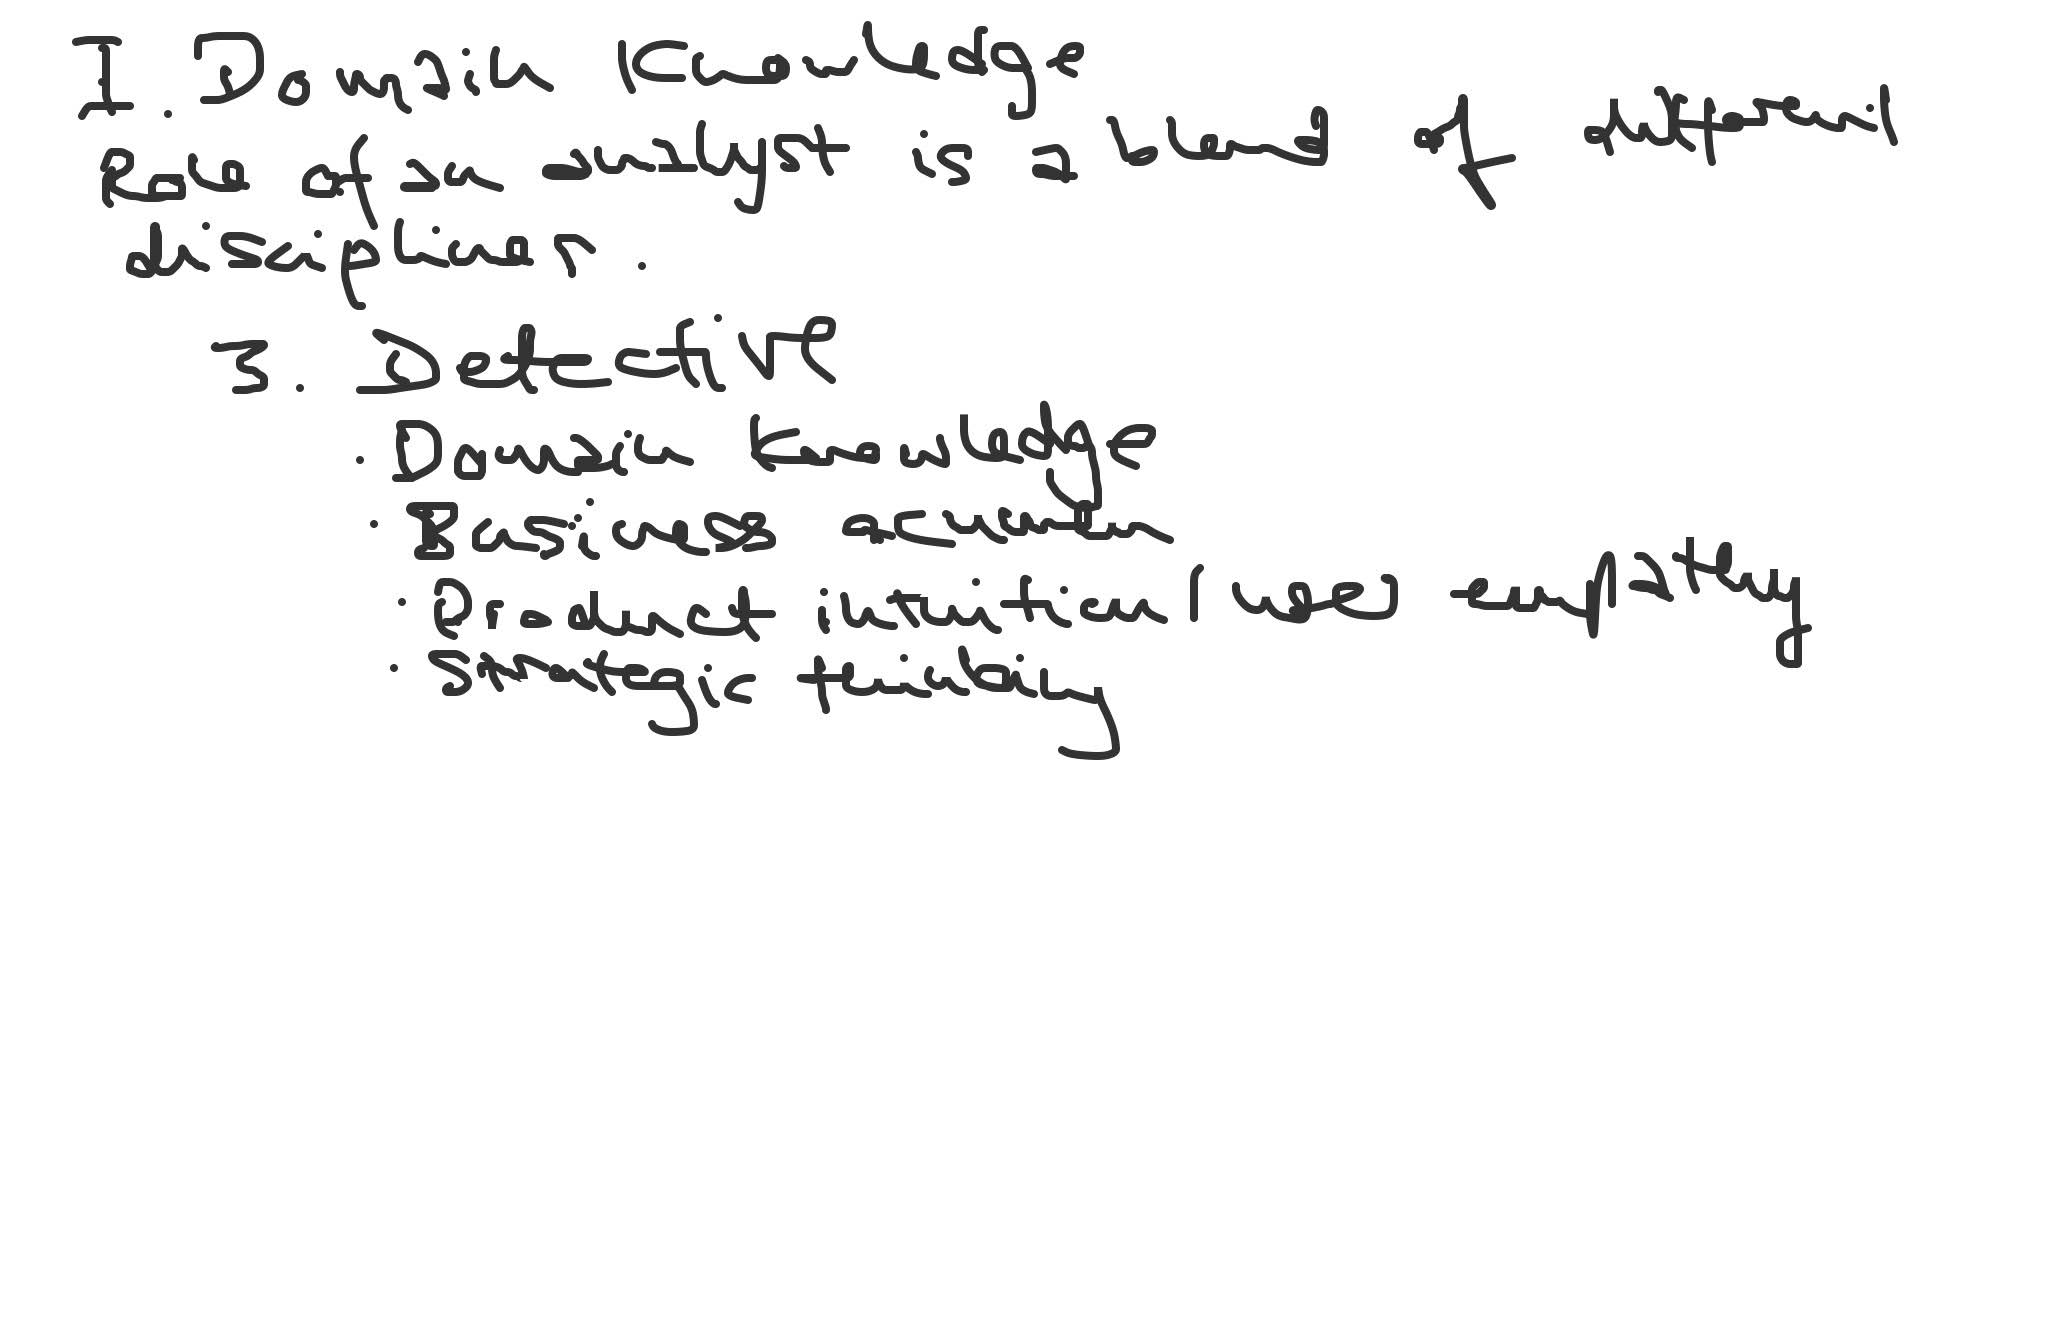 I. Domain Knowledge
Role of an analyst is a blend of different
disciplines.
3. Detective
· Domain knowledge
· Business acumen
· Product intuition / user empathy
· Strategic thinking